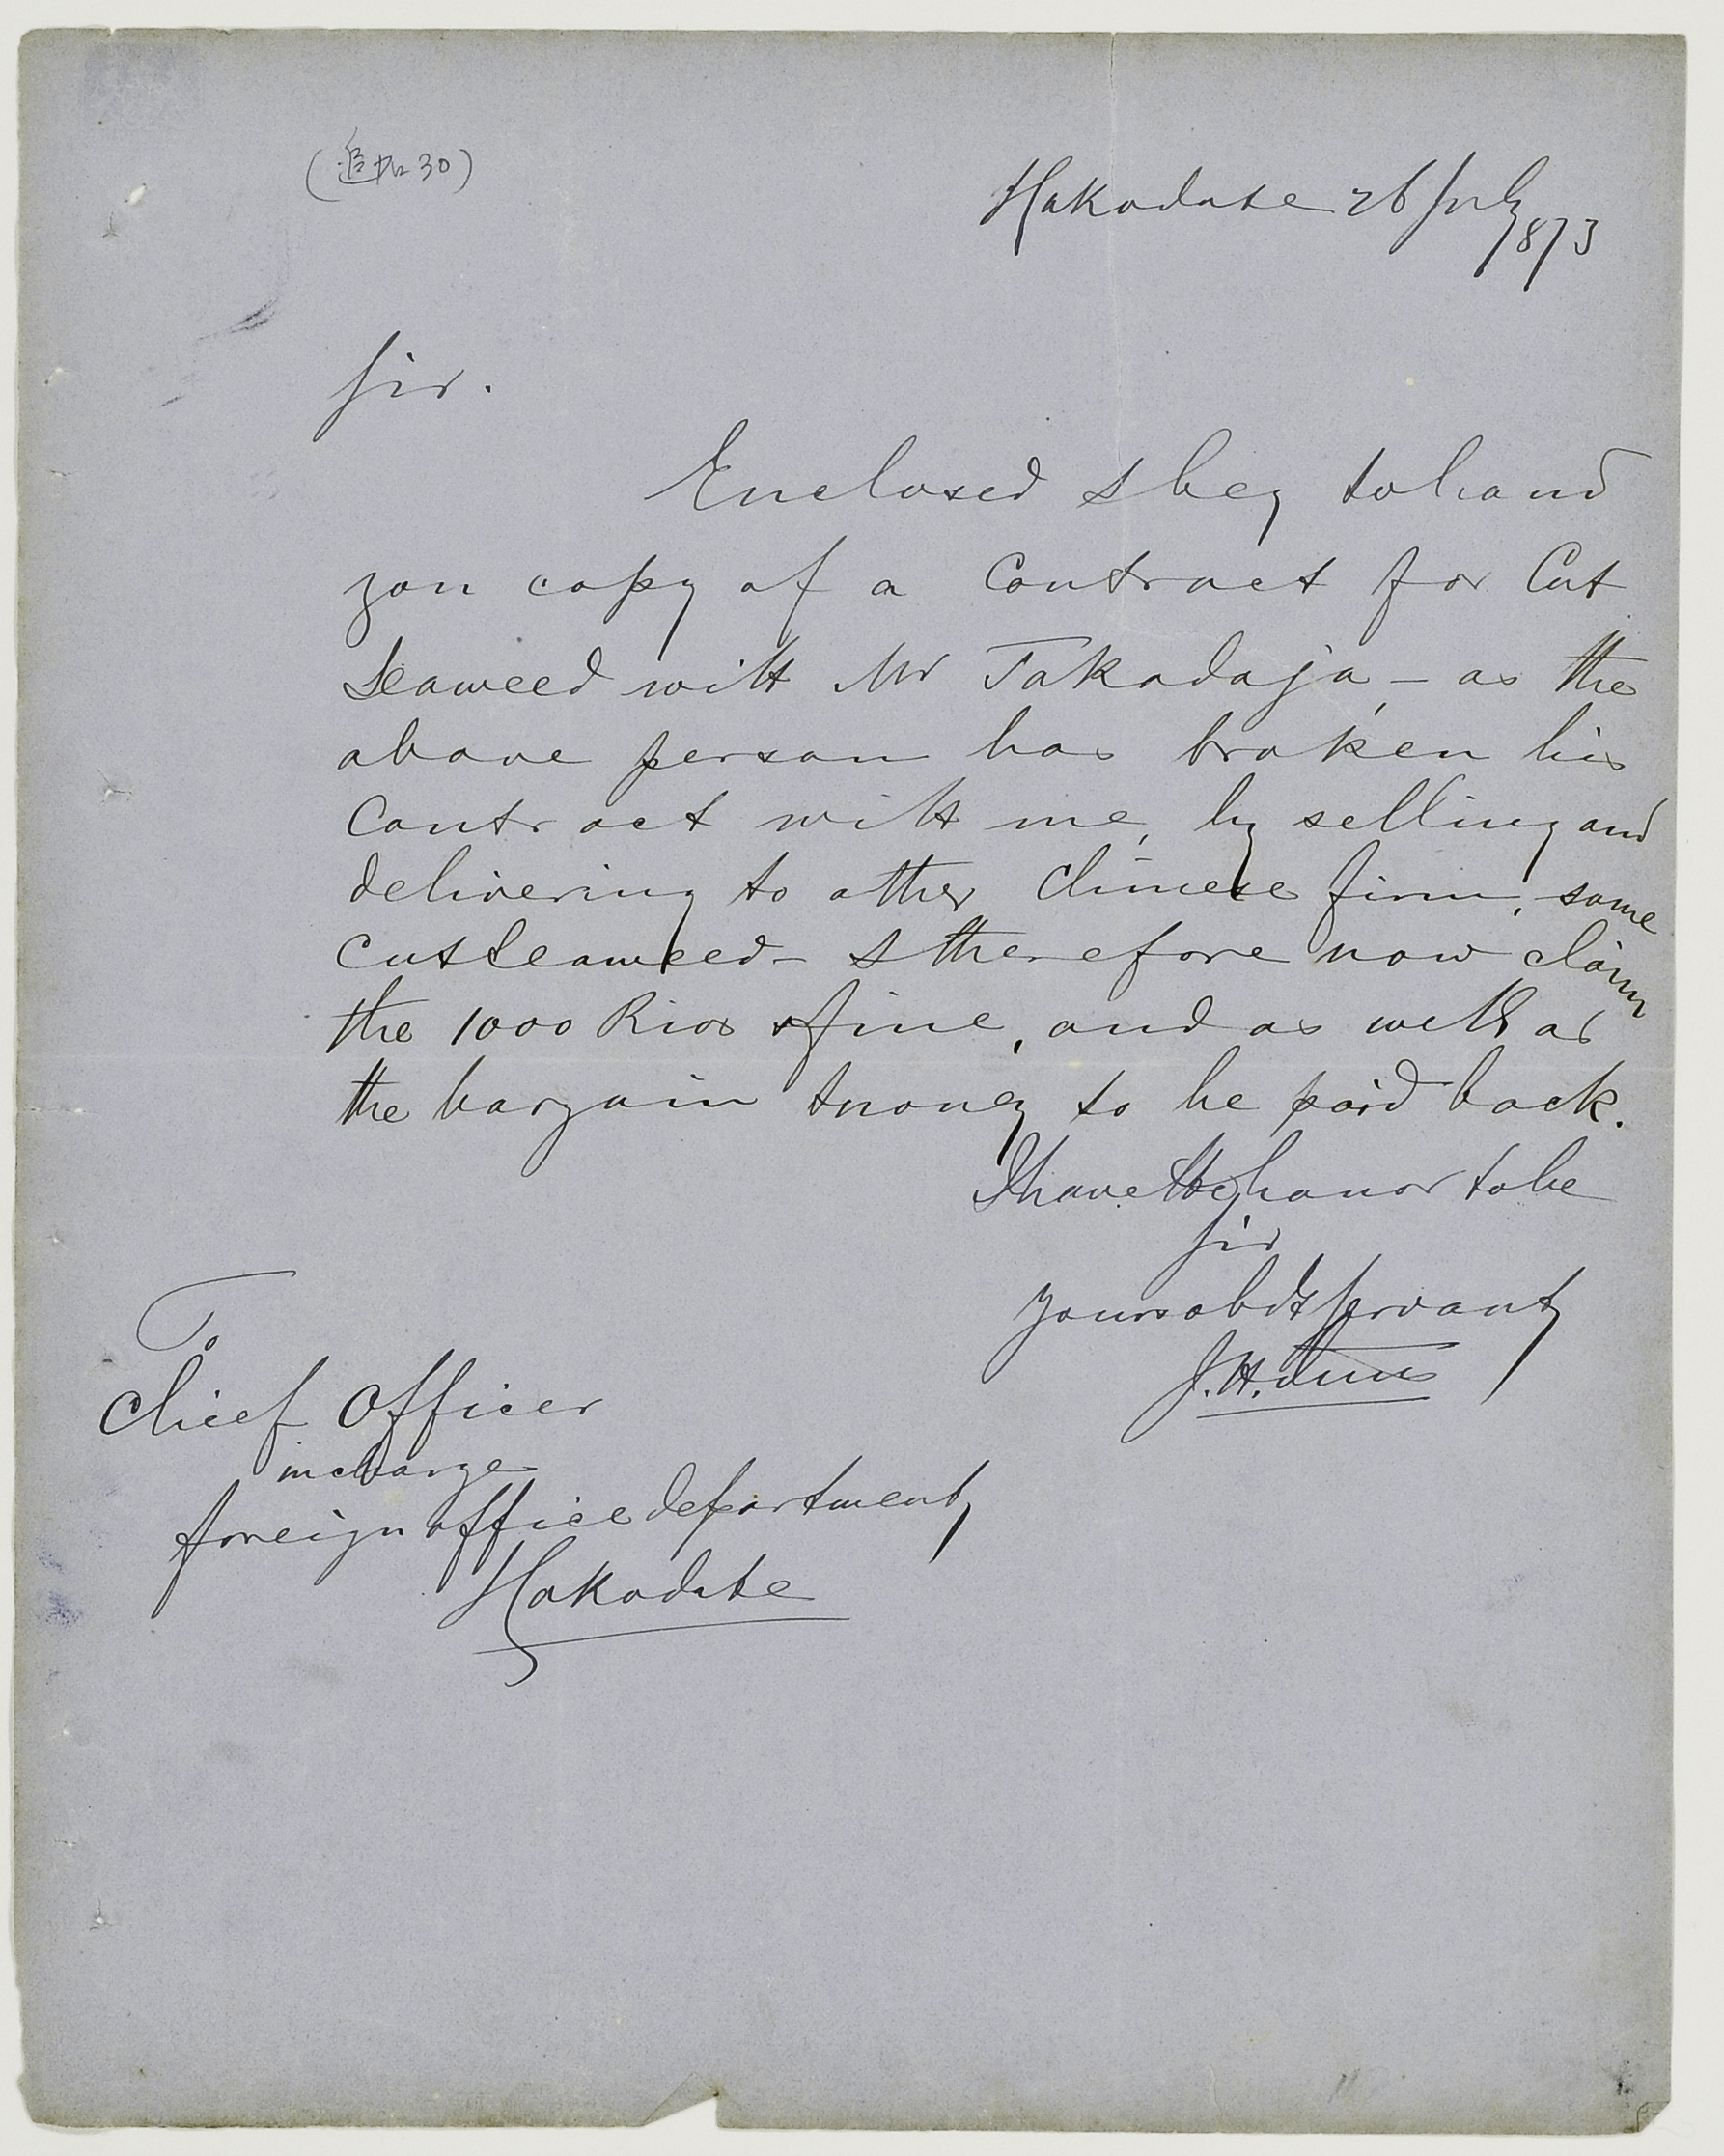 (追加30)
Hakodate 26 July
1873
Sir.
Enclosed I beg to hand
you copy of a Contract for Cut
Seaweed with Mr Takadaja, - as the
above person has broken his
Contract with me, by selling and
delivering to other Chinese firm, some
cutseaweed - I therefore now claim
the 1000 Rios fine, and as well as
the bargain money to be paid back.
I have the honor to be
Sir
yours obdt servant
J. H.
To
Chief Officer
in charge
foreign office department
Hakodate